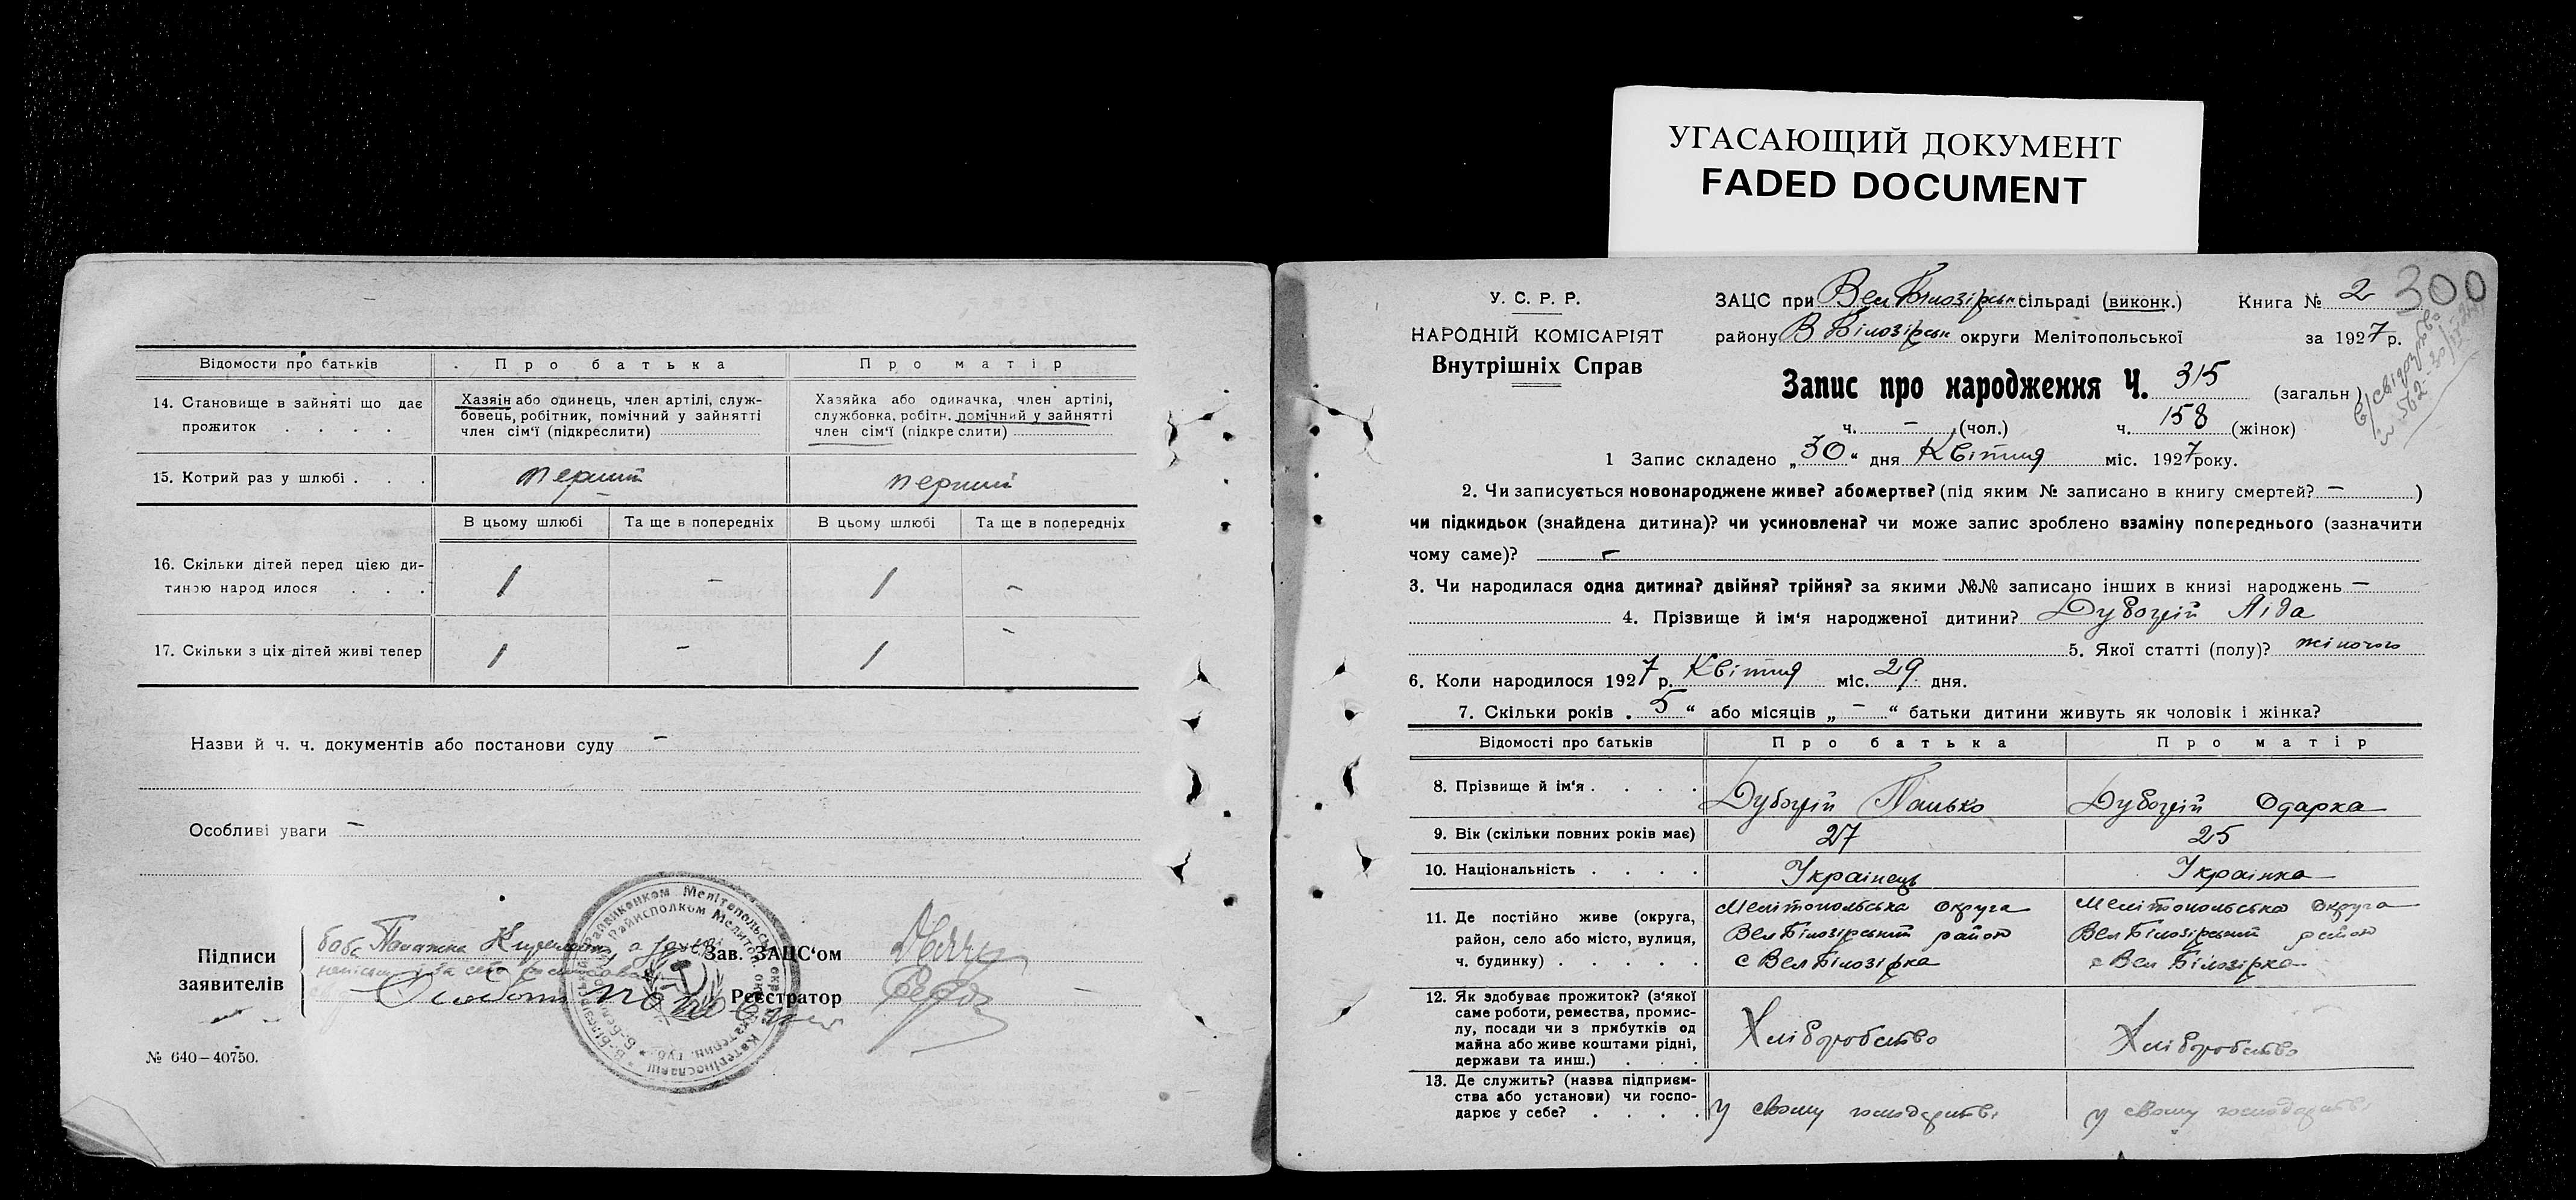 УГАСАЮЩИЙ ДОКУМЕНТ
FADED DOCUMENT
Відомости про батьків Про батька Про матір
14. Становище в зайняті що дає прожиток . . . .
Хазяін або одинець, член артілі, служ-
бовець, робітник, помічний у зайнятті
член сім'ї (підкреслити)
Хазяйка або одиначка, член артілі,
службовка, робітн. помічний у зайнятті
член сім'ї (підкреслити)
15. Котрий раз у шлюбі . . . перший перший
В цьому шлюбі Та ще в попередніх В цьому шлюбі Та ще в попередніх
16. Скільки дітей перед цією ди-
тиною народ илося . . . 1 – 1 –
17. Скільки з ціх дітей живі тепер 1 – 1 –
Назви й ч. ч. документів або постанови суду –
Особливі уваги –
Підписи
заявителів
баба
Зав. ЗАЦС'ом
Реєстратор
№ 640–40750.
300
У. С. Р. Р.
НАРОДНІЙ КОМІСАРІЯТ
Внутрішніх Справ
ЗАЦС при Вел Білозірськ сільраді (виконк.) Книга № 2
району В Білозірськ округи Мелітопольської за 1927 р.
Запис про народження Ч. 315 (загальн.)
ч. – (чол.) ч. 158 (жінок)
1 Запис складено „30“ дня Квітня міс. 1927 року.
2. Чи записується новонароджене живе? або мертве? (під яким № записано в книгу смертей? – )
чи підкидьок (знайдена дитина)? чи усиновлена? чи може запис зроблено взаміну попереднього (зазначити
чому саме)? –
3. Чи народилася одна дитина? двійня? трійня? за якими №№ записано інших в книзі народжень –
4. Прізвище й ім'я народженої дитини? Ліда
5. Якої статті (полу)? жіночого
6. Коли народилося 1927 р. Квітня міс. 29 дня.
7. Скільки років „5“ або місяців „–“ батьки дитини живуть як чоловік і жінка?
Відомості про батьків Про батька Про матір
8. Прізвище й ім'я . . . . Панько Одарка
9. Вік (скільки повних років має) 27 25
10. Національність . . . . Украінець Украінка
11. Де постійно живе (округа,
район, село або місто, вулиця,
ч. будинку) . . . . .
Мелітопольська округа
Вел Білозірський район
с Вел Білозірка
Мелітопольська округа
Вел Білозірський район
с Вел Білозірка
12. Як здобуває прожиток? (з'якої
саме роботи, ремества, промис-
лу, посади чи з прибутків од
майна або живе коштами рідні,
держави та инш.) . . .
Хліборобство Хліборобство
13. Де служить? (назва підприєм-
ства або установи) чи госпо-
дарює у себе? . . . .
у свому господарстві у свому господарстві